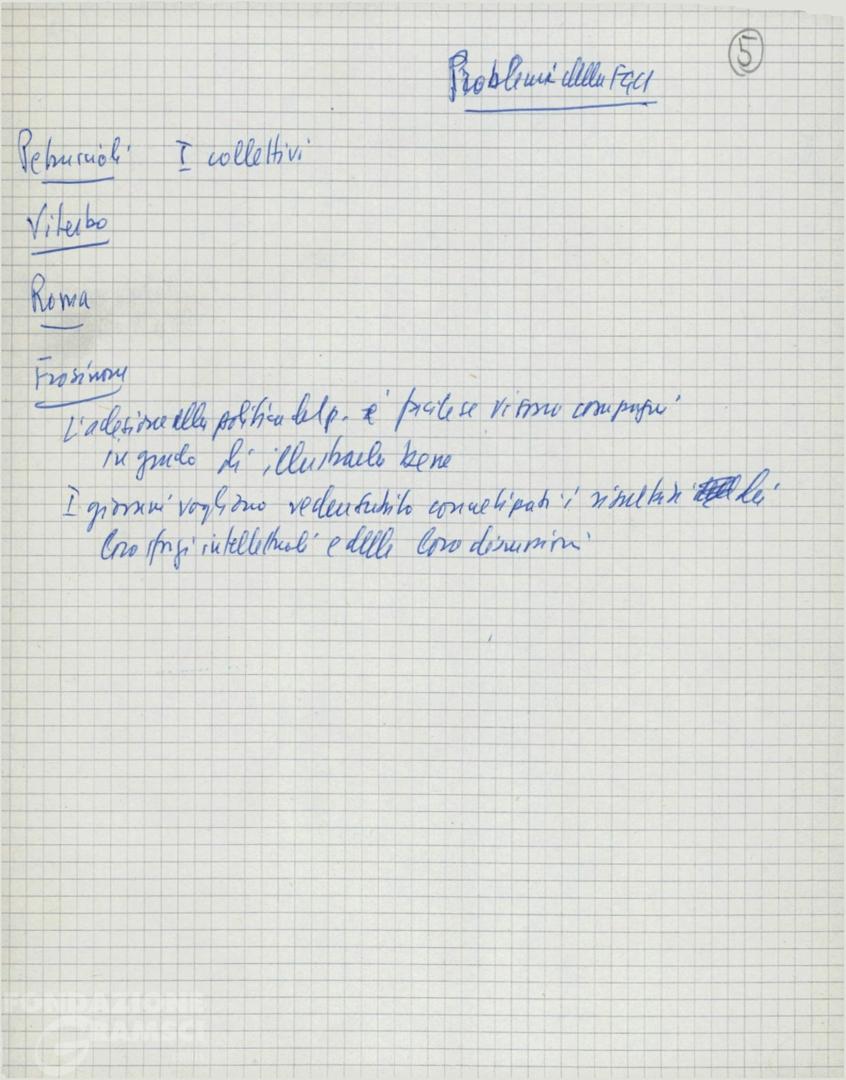 5
Problemi della FGCI
Petruccioli I collettivi
Viterbo
Roma
Frosinone
L'adesione alla politica del p. è facile se vi sono compagni
in grado di illustrarla bene
I giovani vogliono vedere subito i risultati dei
loro sforzi intellettuali e delle loro discussioni
FONDAZIONE
GRAMSCI